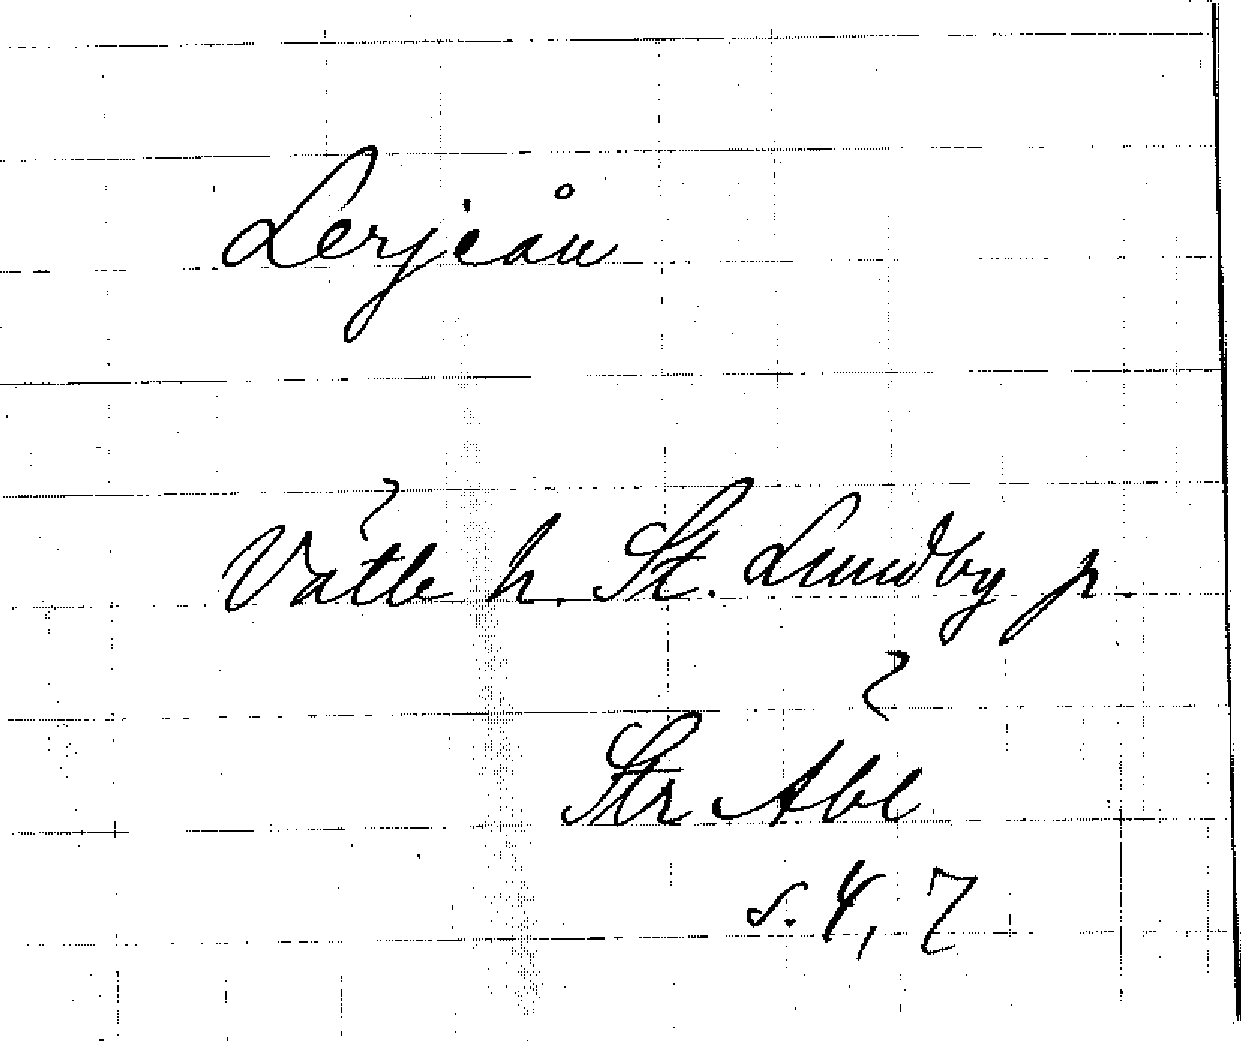 Lerjeån
Vätle h. St. Lundby p.
Str Abl
s. 4, 7